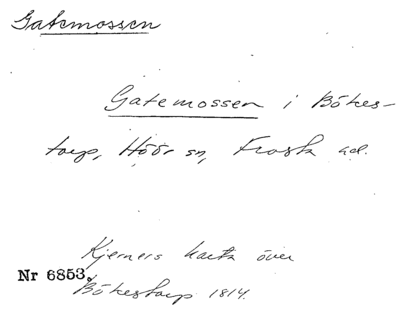 Gatemossen
Gatemossen i Bökes-
torp, Höör sn, Frosta hd.
Kjerners karta över
Nr 6853.
Bökestorp 1814.